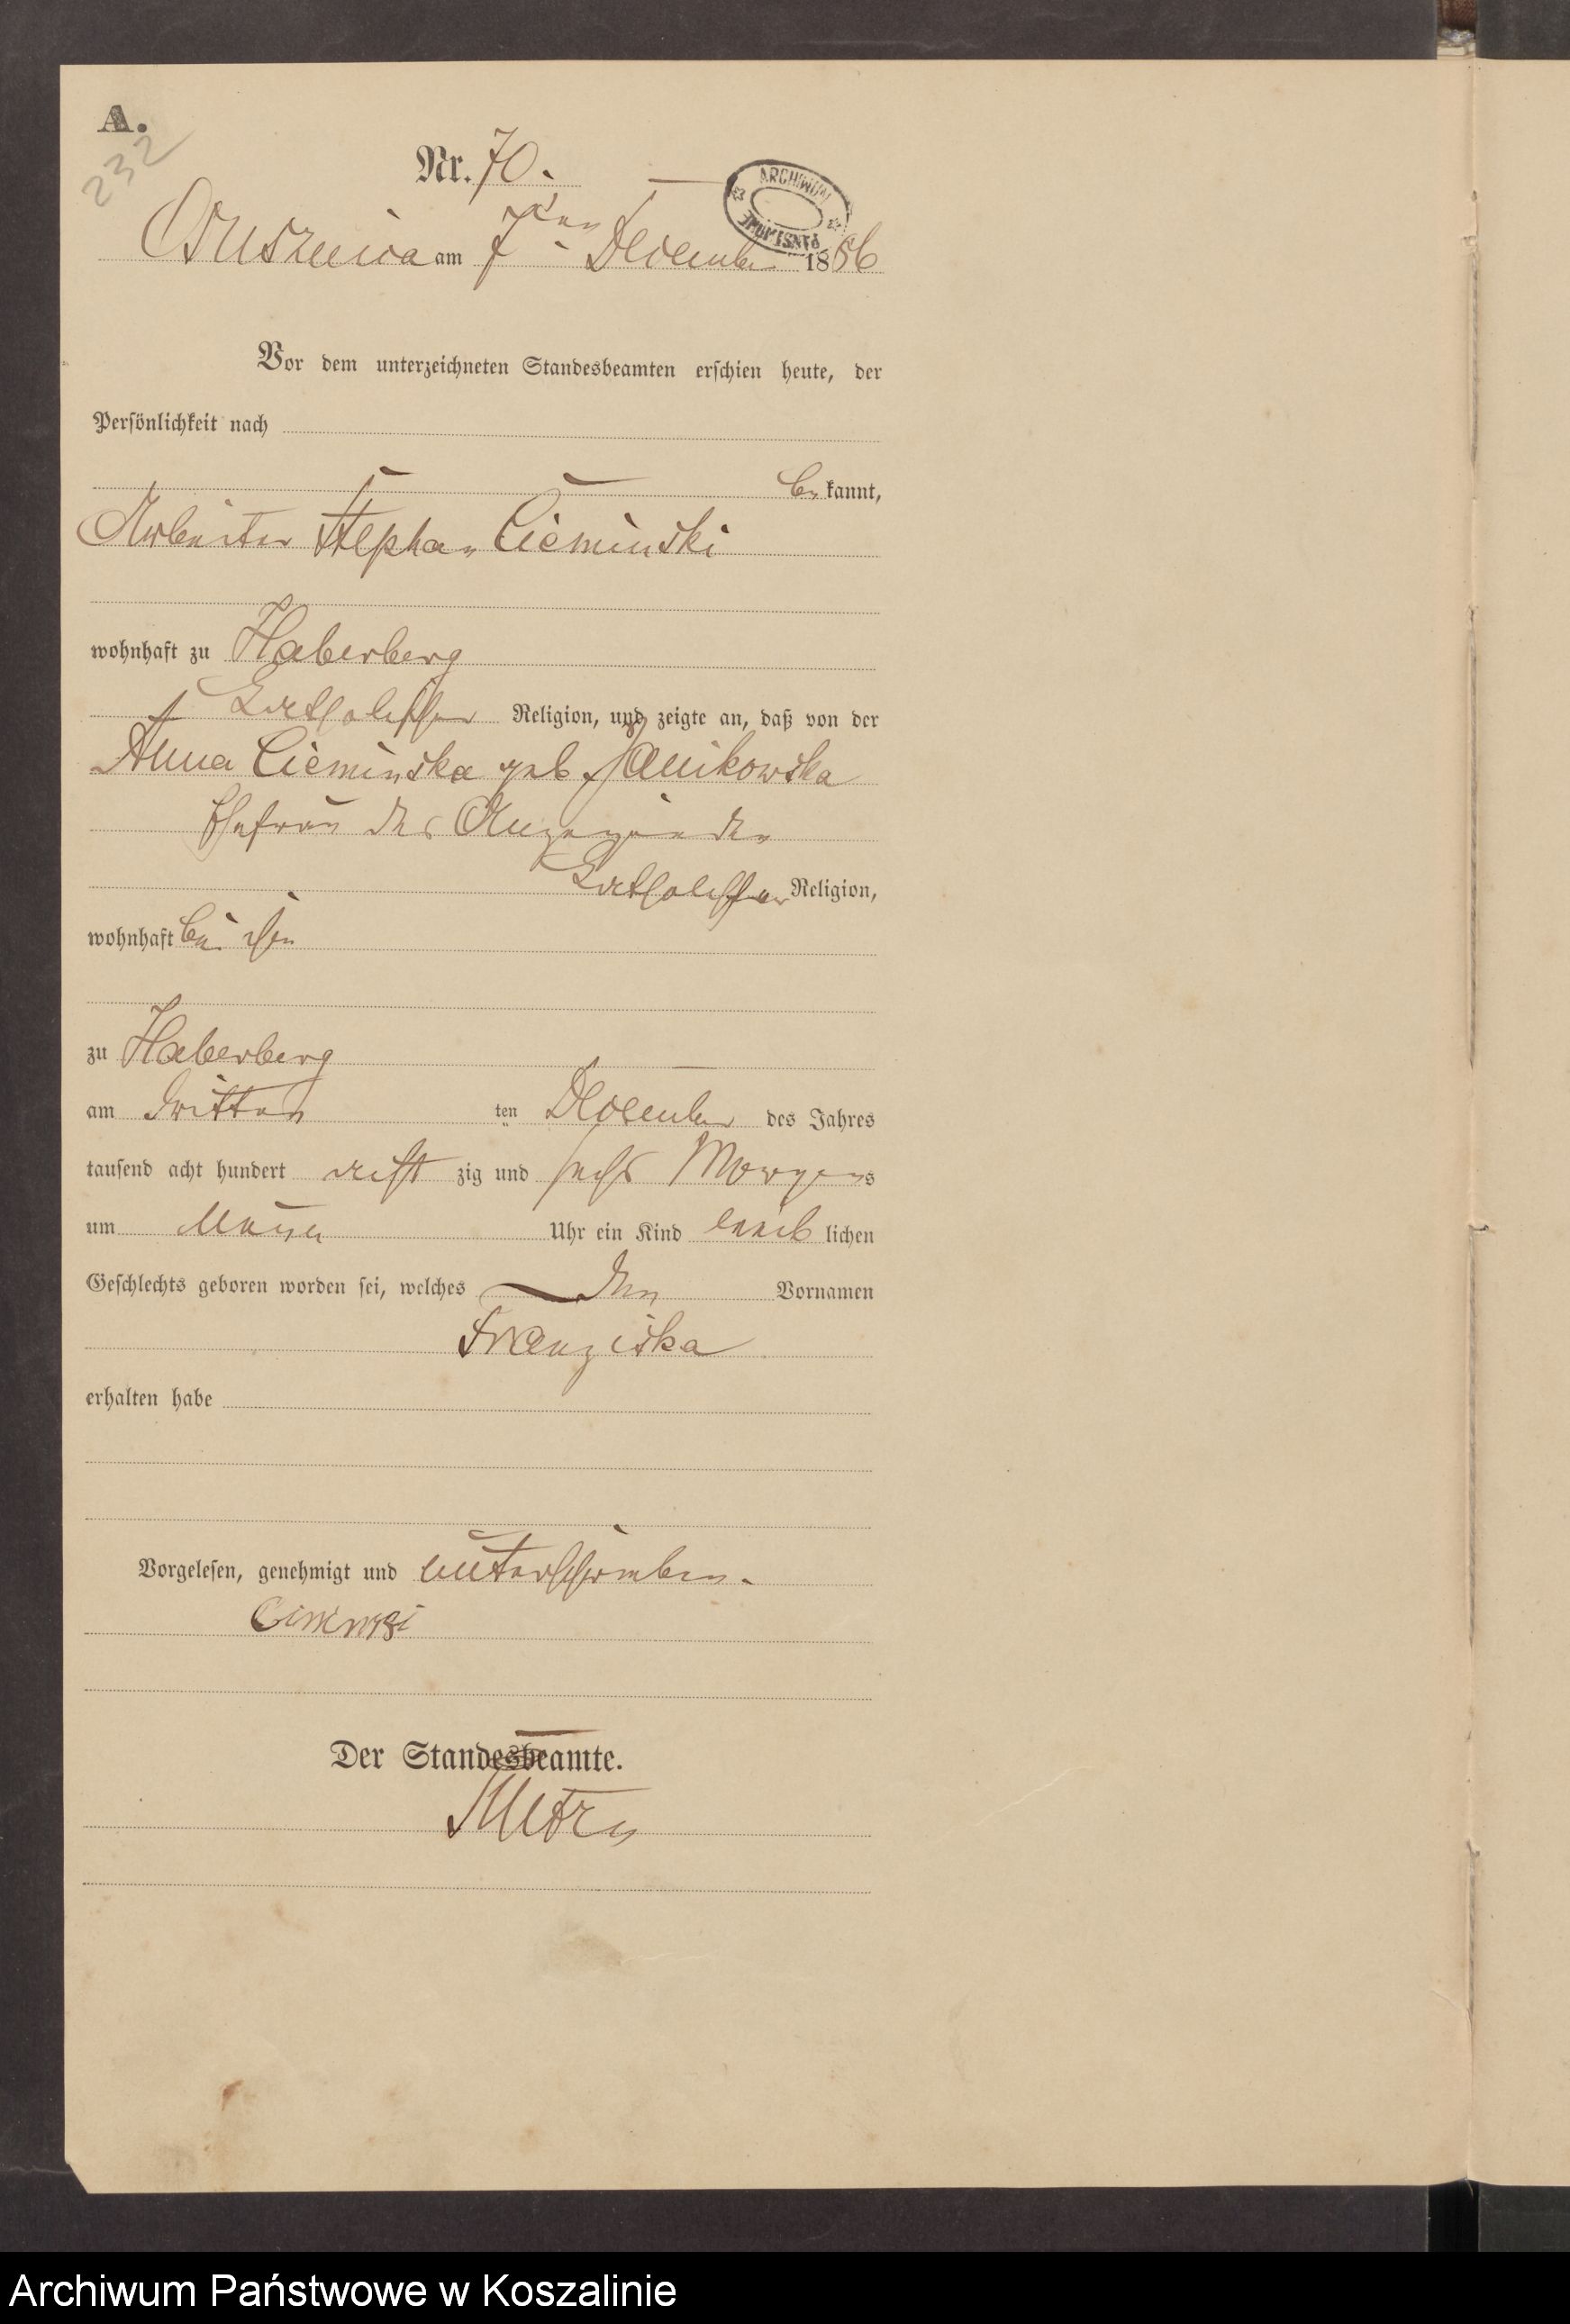 A.
232
Nr. 70.
ARCHIWUM PAŃSTWOWE
Ossusznica am 7ten December 1886
Vor dem unterzeichneten Standesbeamten erschien heute, der
Persönlichkeit nach
bekannt,
Arbeiter Stephan Cieminski
wohnhaft zu Haberberg
katholischer Religion, und zeigte an, daß von der
Anna Cieminska geb. Janikowska
Ehefrau des Anzeigenden
katholischer Religion,
wohnhaft bei ihm
zu Haberberg
am dritten ten December des Jahres
tausend acht hundert acht zig und sechs Morgens
um Uhr ein Kind weiblichen
Geschlechts geboren worden sei, welches den Vornamen
Franziska
erhalten habe
Vorgelesen, genehmigt und unterschrieben.
Der Standesbeamte.
Archiwum Państwowe w Koszalinie